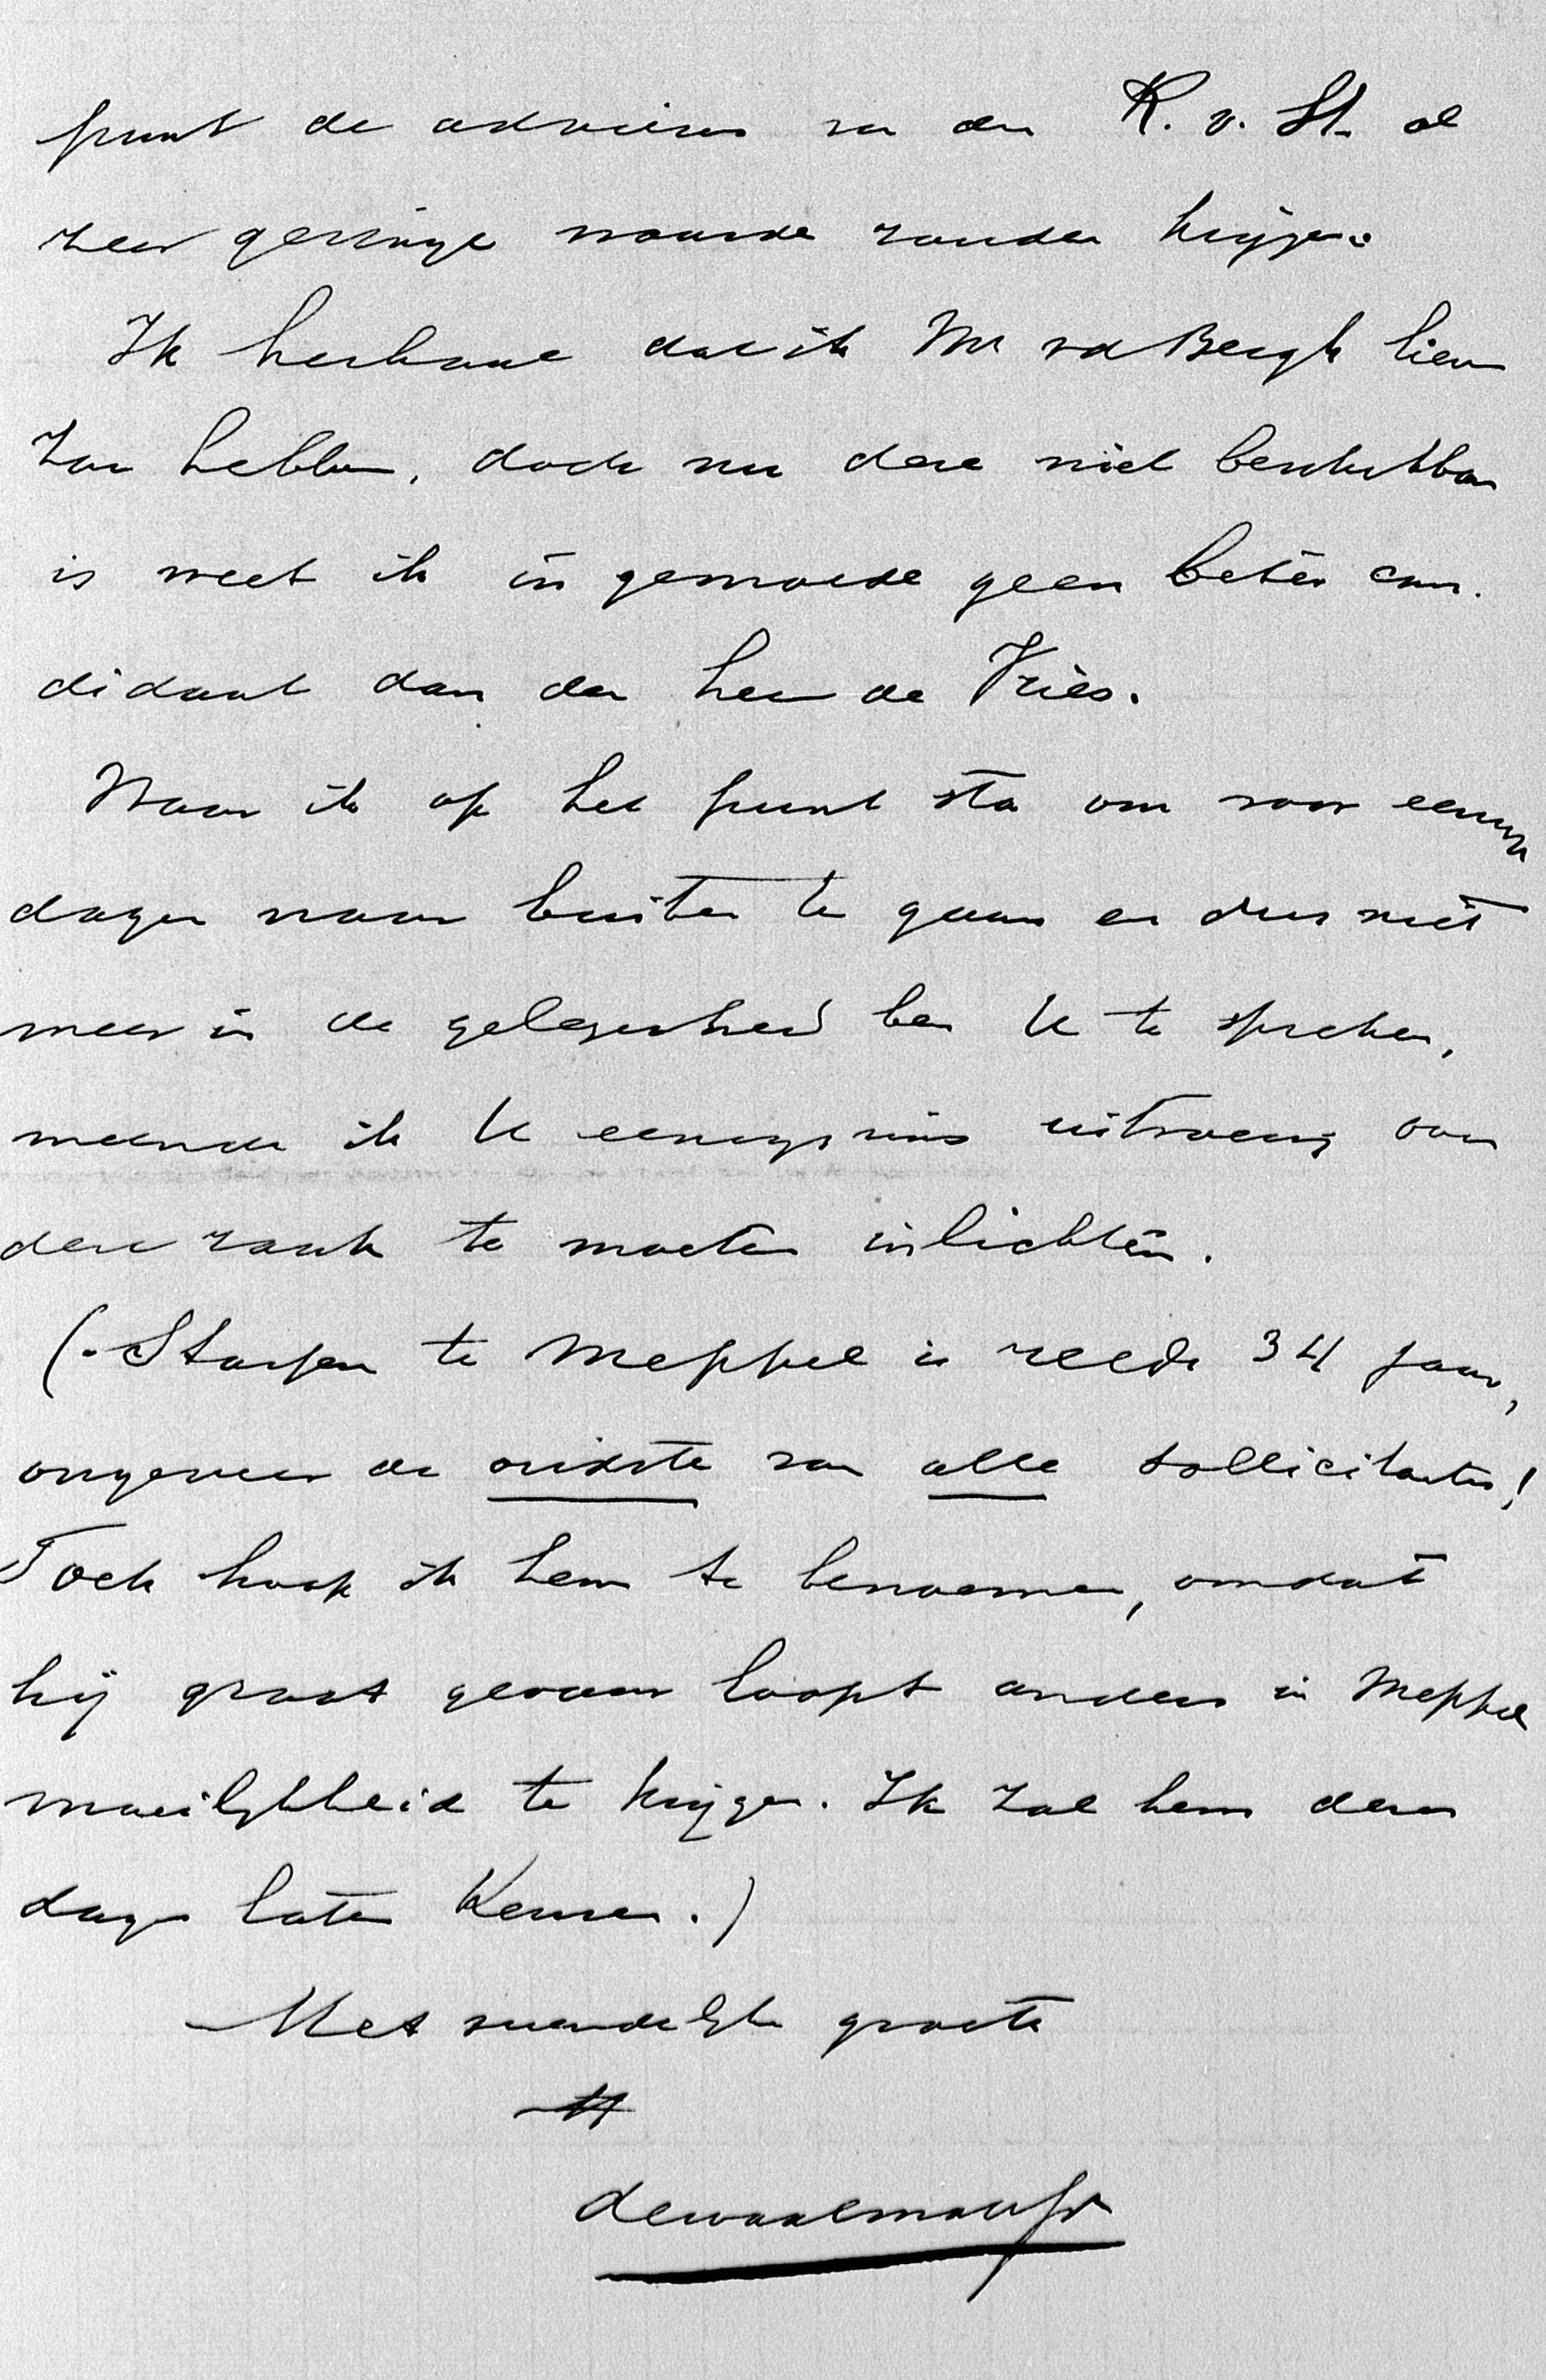 punt de adviezen van den R. v. St. al
zeer geringe waarde zouden krijgen.
Ik herhaal dat ik Mr vd Bergh liever
zou hebben, doch nu deze niet beschikbaar
is weet ik in gemoede geen beter can-
didaat dan den heer de Vries.
Waar ik op het punt sta om voor eenige
dagen naar buiten te gaan en dus niet
meer in de gelegenheid ben U te spreken,
meende ik U eenigszins uitvoerig over
deze zaak te moeten inlichten.
( te Meppel is reeds 34 jaar,
ongeveer de oudste van alle sollicitanten!
Toch hoop ik hem te benoemen, omdat
hij groot gevaar loopt anders in Meppel
moeilijkheid te krijgen. Ik zal hem dezer
dagen laten komen.)
Met vriendelijke groete